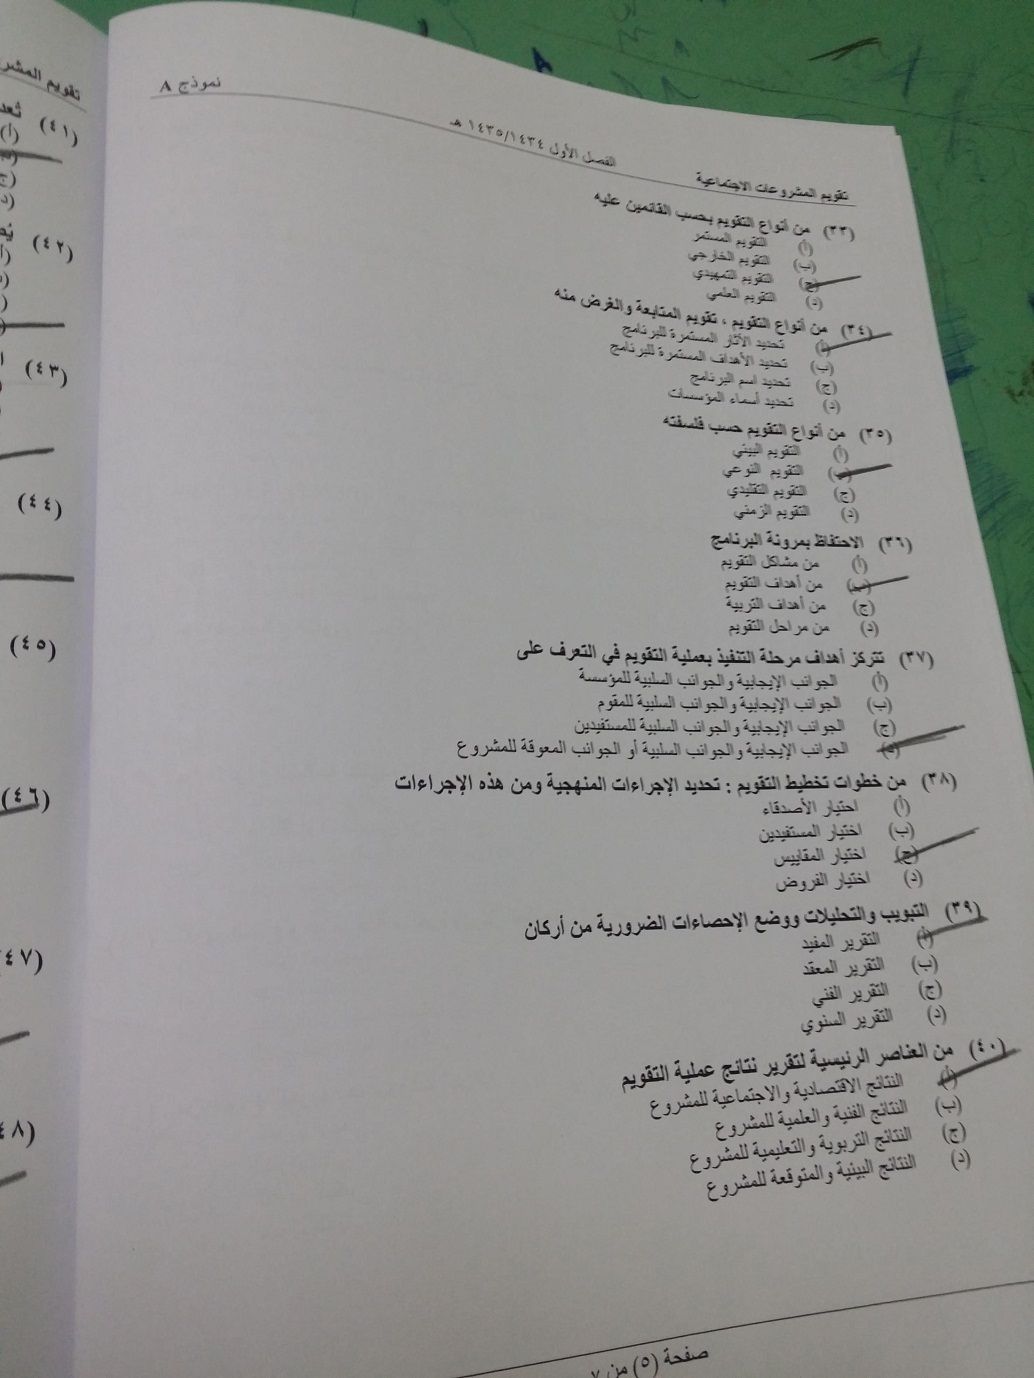 تقويم المشروعات الاجتماعية
الفصل الأول ١٤٣٥/١٤٣٤ هـ
نموذج A
(٣٣) من أنواع التقويم بحسب القائمين عليه
(أ) التقويم المستمر
(ب) التقويم الخارجي
(ج) التقويم التمهيدي
(د) التقويم العلمي
(٣٤) من أنواع التقويم ، تقويم المتابعة والغرض منه
(أ) تحديد الآثار المستمرة للبرنامج
(ب) تحديد الأهداف المستمرة للبرنامج
(ج) تحديد اسم البرنامج
(د) تحديد أسماء المؤسسات
(٣٥) من أنواع التقويم حسب فلسفته
(أ) التقويم البيني
(ب) التقويم النوعي
(ج) التقويم التقليدي
(د) التقويم الزمني
(٣٦) الاحتفاظ بمرونة البرنامج
(أ) من مشاكل التقويم
(ب) من أهداف التقويم
(ج) من أهداف التربية
(د) من مراحل التقويم
(٣٧) تتركز أهداف مرحلة التنفيذ بعملية التقويم في التعرف على
(أ) الجوانب الإيجابية والجوانب السلبية للمؤسسة
(ب) الجوانب الإيجابية والجوانب السلبية للمقوم
(ج) الجوانب الإيجابية والجوانب السلبية للمستفيدين
(د) الجوانب الإيجابية والجوانب السلبية أو الجوانب المعوقة للمشروع
(٣٨) من خطوات تخطيط التقويم : تحديد الإجراءات المنهجية ومن هذه الإجراءات
(أ) احتيار الأصدقاء
(ب) اختيار المستفيدين
(ج) اختيار المقاييس
(د) اختيار الفروض
(٣٩) التبويب والتحليلات ووضع الإحصاءات الضرورية من أركان
(أ) التقرير المفيد
(ب) التقرير المعقد
(ج) التقرير الفني
(د) التقرير السنوي
(٤٠) من العناصر الرئيسية لتقرير نتائج عملية التقويم
(أ) النتائج الاقتصادية والاجتماعية للمشروع
(ب) النتائج الفنية والعلمية للمشروع
(ج) النتائج التربوية والتعليمية للمشروع
(د) النتائج البيئية والمتوقعة للمشروع
صفحة (٥) من ٧
(٤١)
(٤٢)
(٤٣)
(٤٤)
(٤٥)
(٤٦)
(٤٧)
(٤٨)